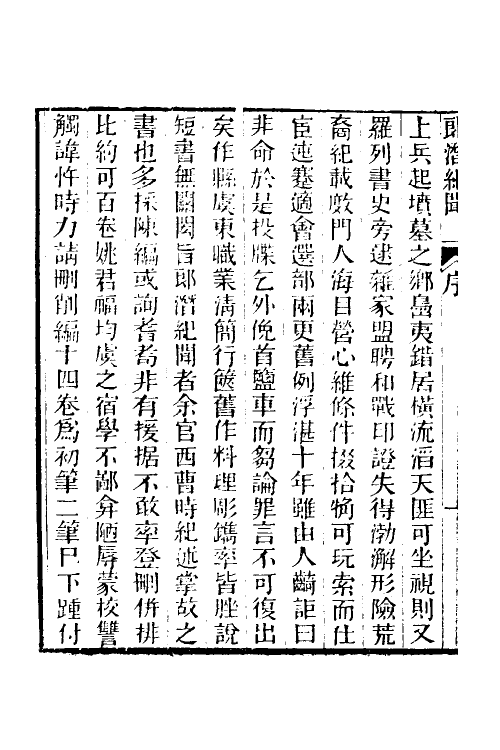 郎潛紀聞 序 一
上兵起墳墓之鄉島夷錯居橫流滔天匪可坐視則又
羅列書史旁逮雜家盟聘和戰印證失得渤澥形險荒
裔紀載敂門人海目營心維條件掇拾猶可玩索而仕
宦迍蹇適會選部兩更舊例浮湛十年雖由人齮詎曰
非命於是投牒乞外俛首鹽車而芻論罪言不可復出
矣作縣虞東職業淸簡行篋舊作料理彫鐫率皆脞說
短書無關閎旨郎潛紀聞者余官西曹時紀述掌故之
書也多採陳編或詢耆耇非有援据不敢率登刪併排
比約可百卷姚君福均虞之宿學不鄙弇陋辱蒙校讐
觸諱忤時力請刪削編十四卷爲初筆二筆巳下踵付